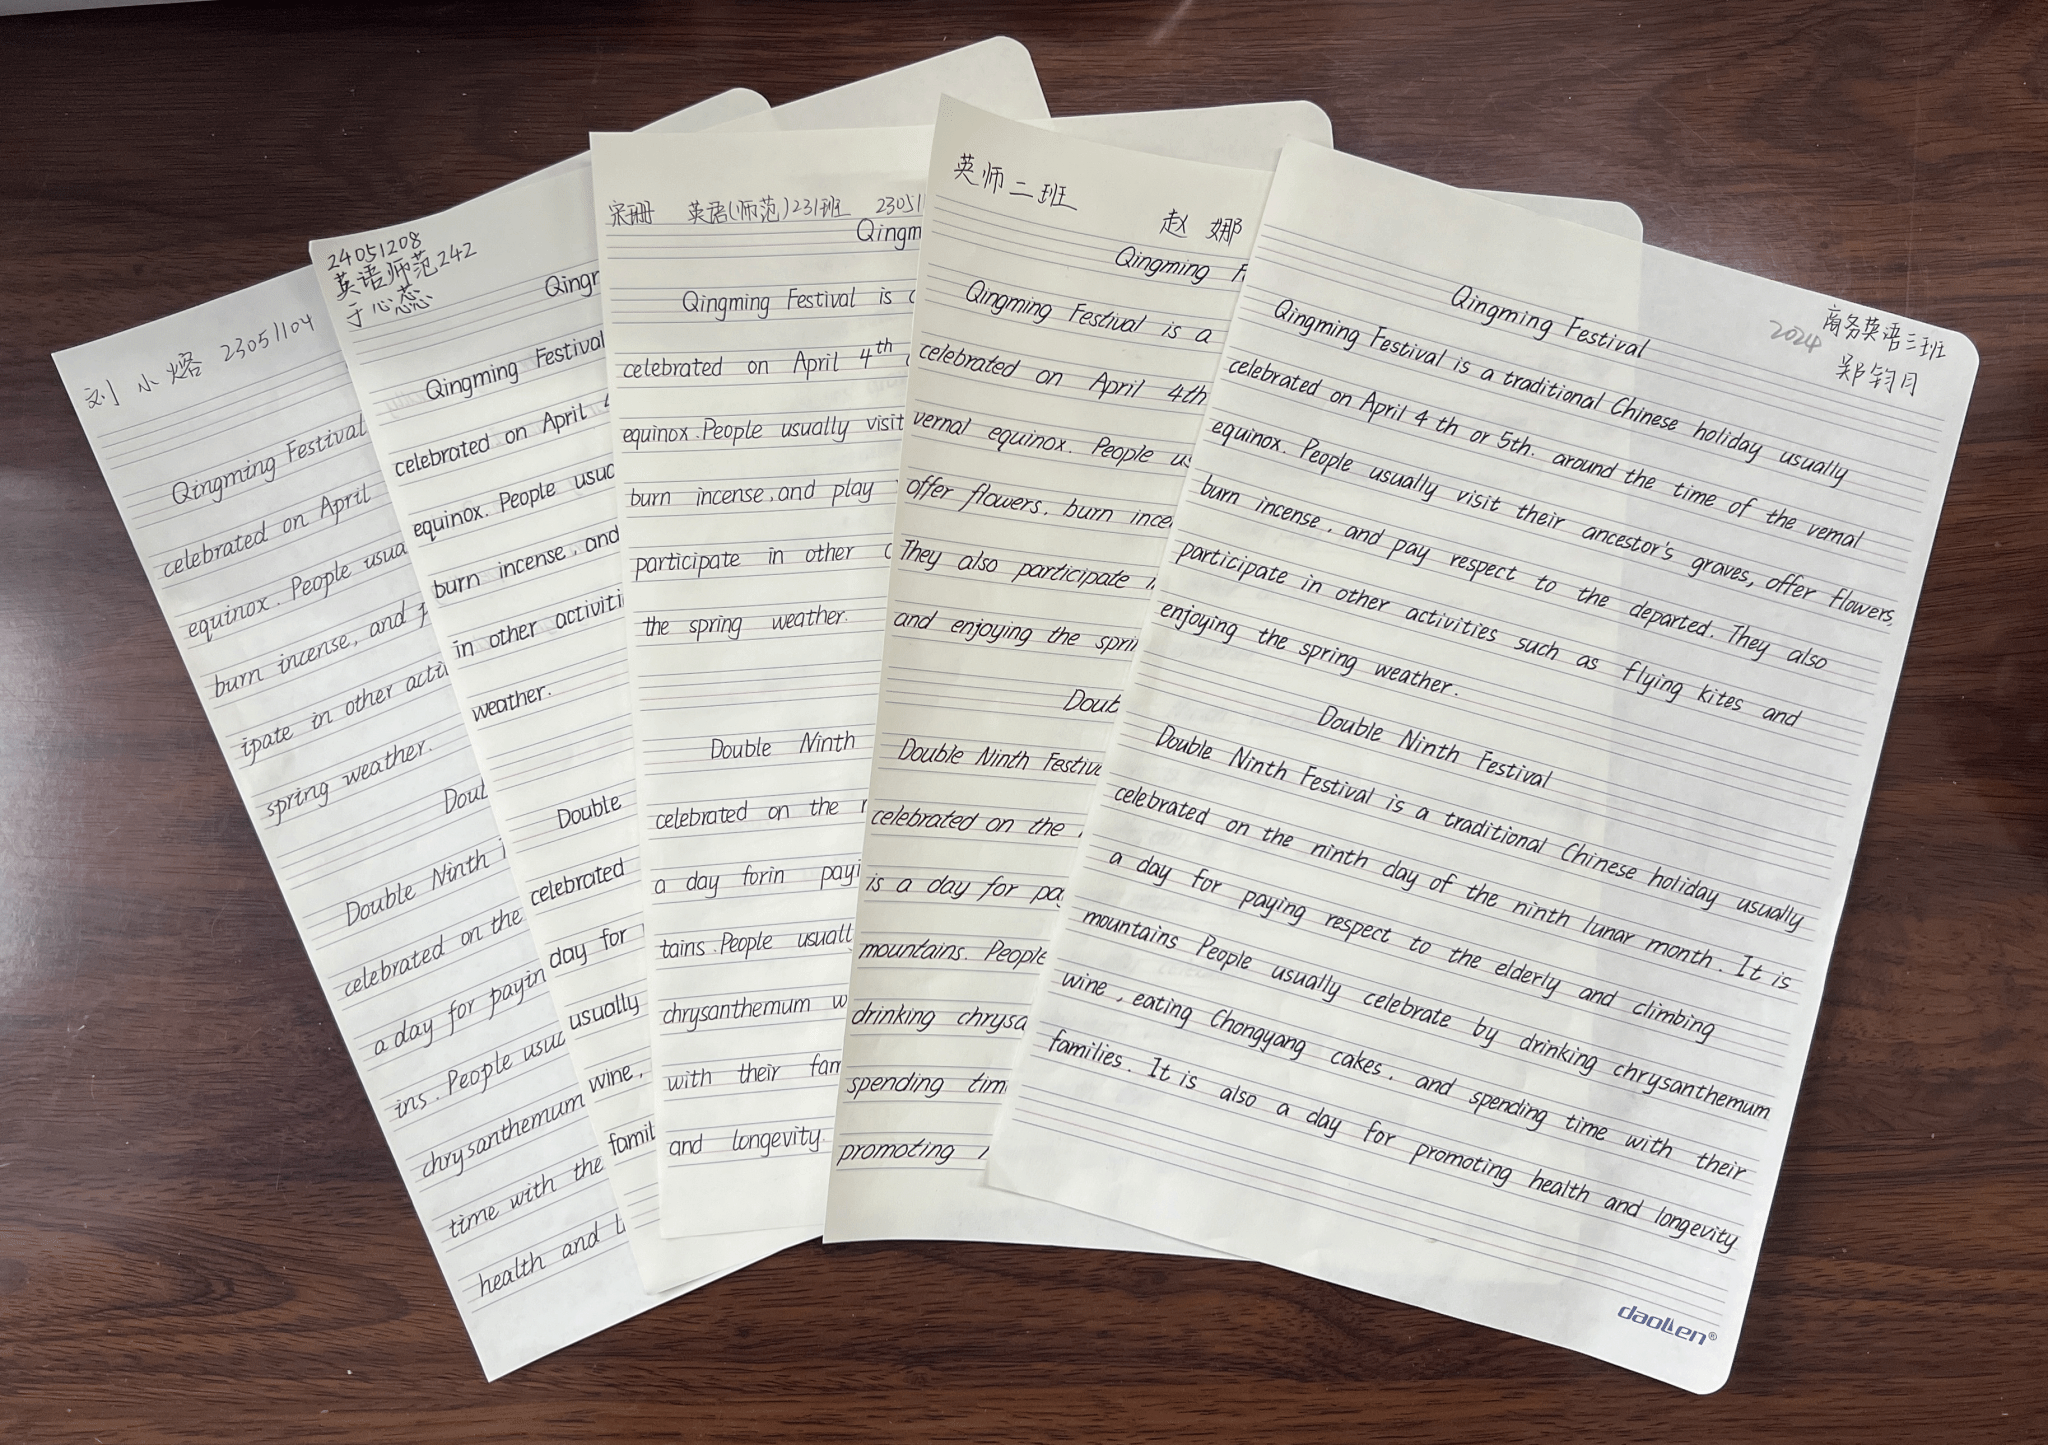 刘小熔 23051104
Qingming Festival
celebrated on April
equinox. People usua
burn incense, and p
ipate in other acti
spring weather.
Doul
Double Ninth
celebrated on the
a day for payin
ins. People usuc
chrysanthemum
time with the
health and L
24051208
英语师范242
于心蕊
Qingr
Qingming Festival
celebrated on April 4
equinox. People usuc
burn incense, and
in other activiti
weather.
Double
celebrated
day for
usually
wine,
famil
宋珊 英语(师范)231班 23051
Qingm
Qingming Festival is
celebrated on April 4th
equinox. People usually visit
burn incense, and play
participate in other
the spring weather.
Double Ninth
celebrated on the
a day forin payi
tains. People usuall
chrysanthemum w
with their fam
and longevity.
英师二班
赵娜
Qingming F
Qingming Festival is a
celebrated on April 4th
vernal equinox. People us
offer flowers, burn ince
They also participate i
and enjoying the spri
Doub
Double Ninth Festiva
celebrated on the
is a day for pa
mountains. People
drinking chrysa
spending tim
promoting
商务英语三班
2024
郑钧月
Qingming Festival
Qingming Festival is a traditional Chinese holiday usually
celebrated on April 4 th or 5th. around the time of the vernal
equinox. People usually visit their ancestor's graves, offer flowers,
burn incense, and pay respect to the departed. They also
participate in other activities such as flying kites and
enjoying the spring weather.
Double Ninth Festival
Double Ninth Festival is a traditional Chinese holiday usually
celebrated on the ninth day of the ninth lunar month. It is
a day for paying respect to the elderly and climbing
mountains People usually celebrate by drinking chrysanthemum
wine, eating Chongyang cakes, and spending time with their
families. It is also a day for promoting health and longevity
daolen®